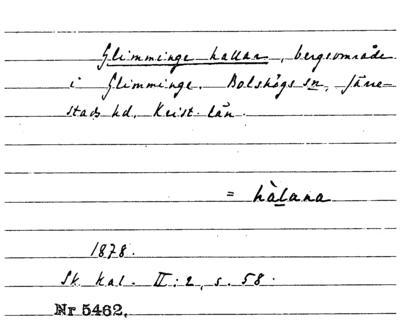 Glimminge hallar, bergsområde
i Glimminge. Bolshögs sn, Järre-
stads hd. Krist. län.
= hàlana
1878.
Sk. kal. II:2, s. 58.
Nr 5462.